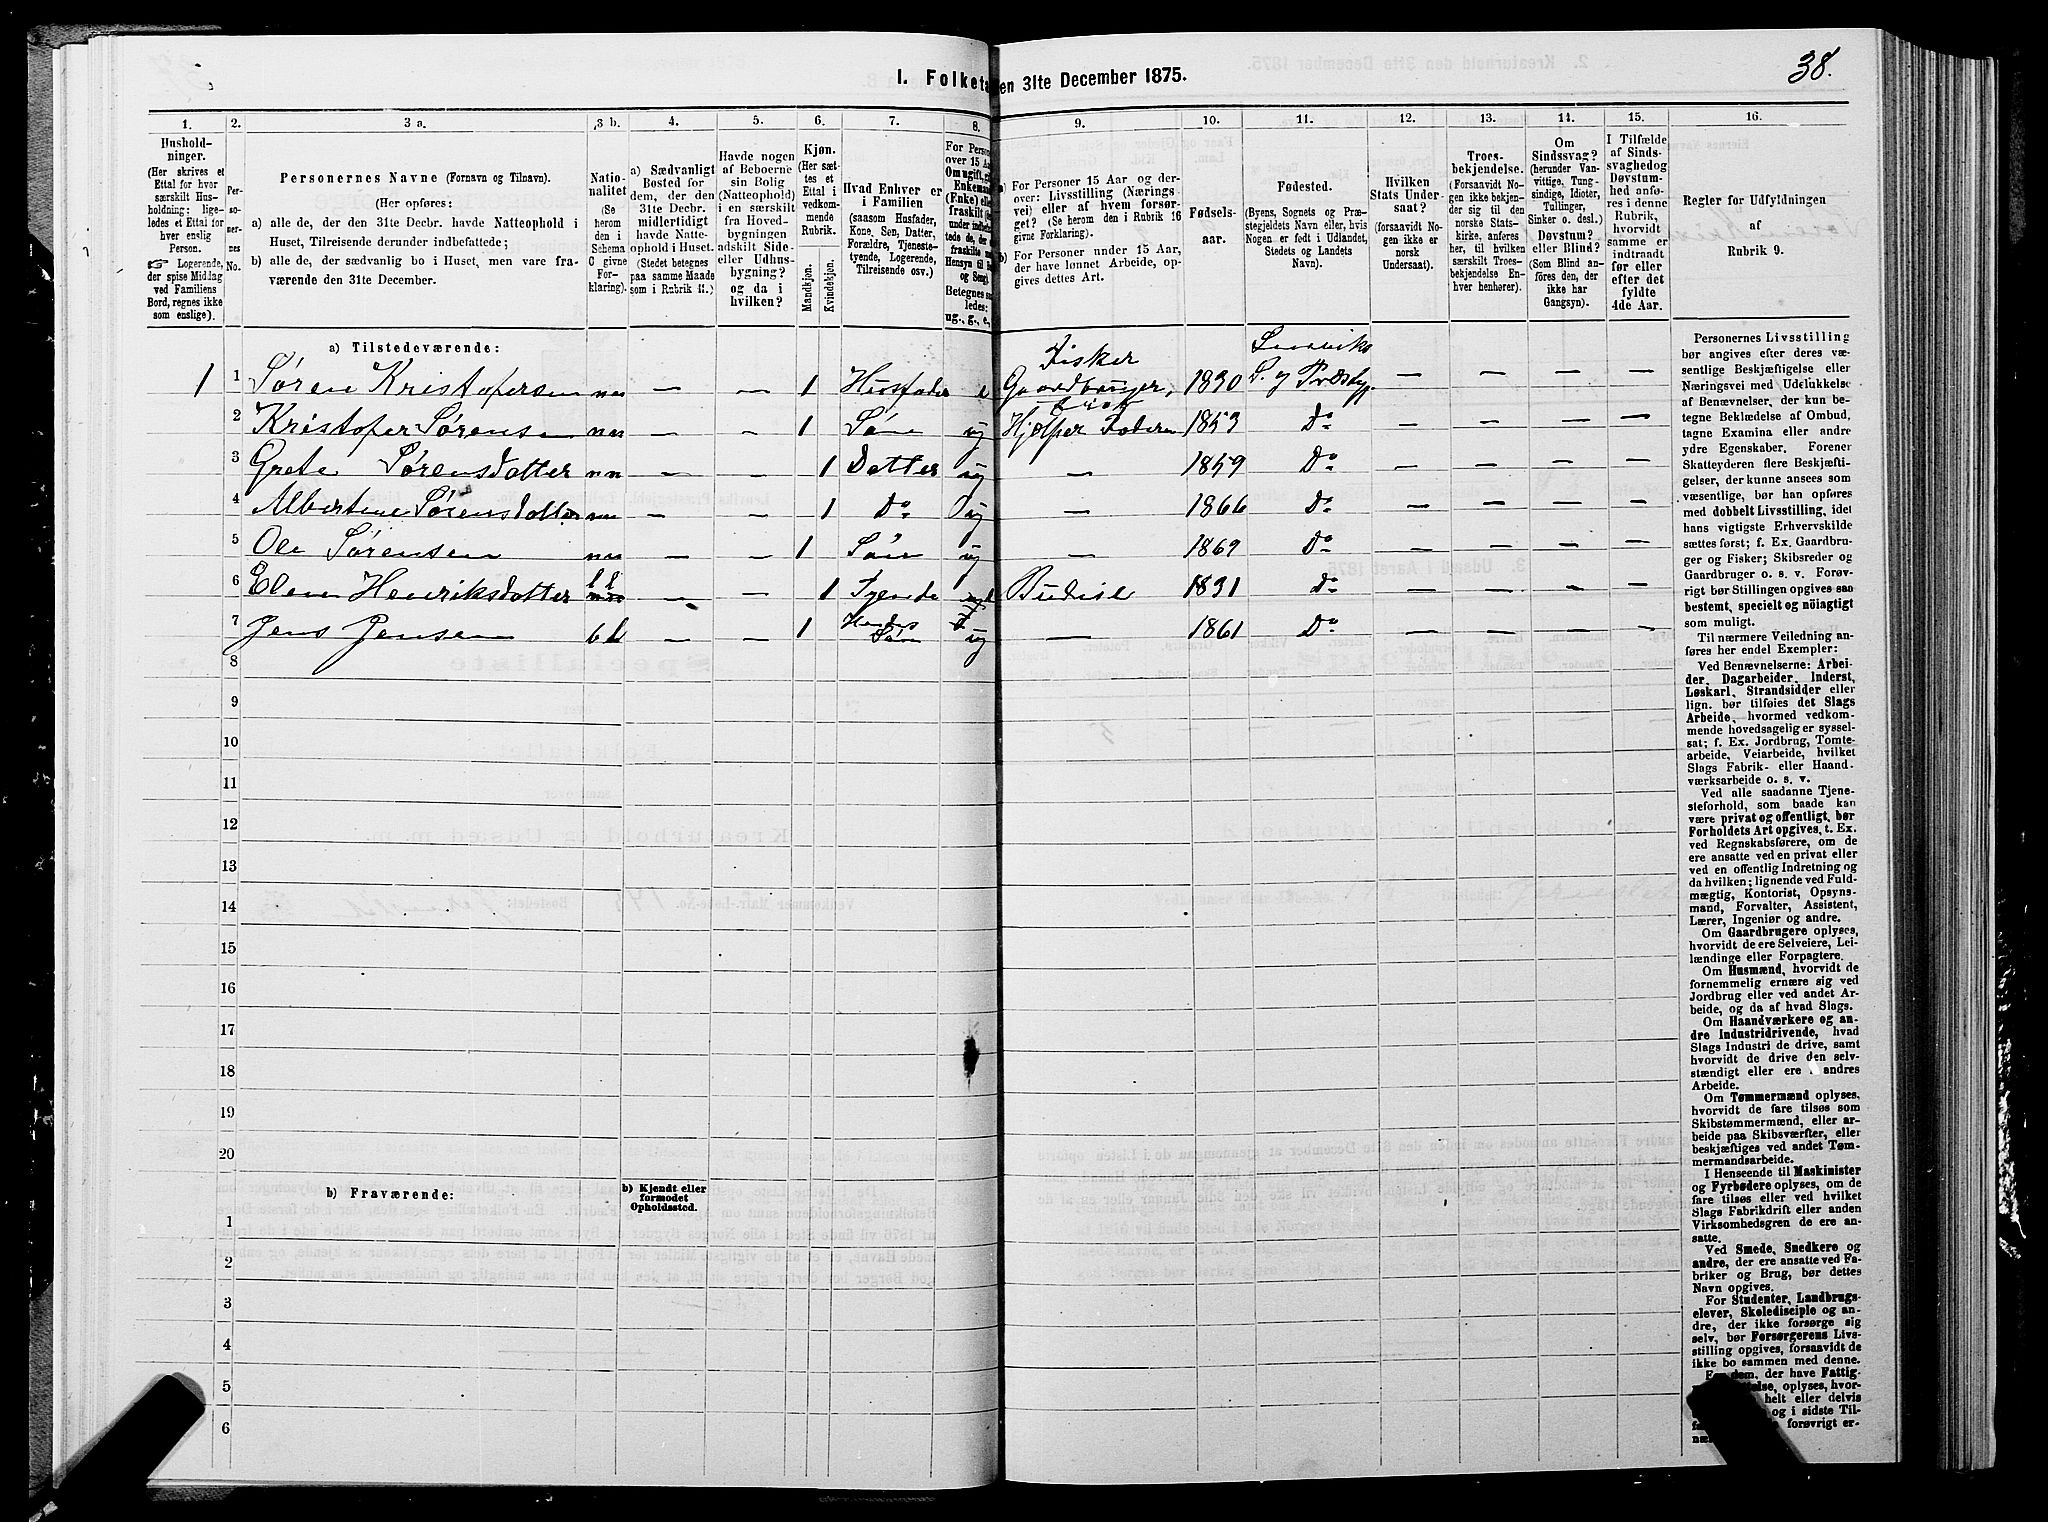 38.
I. Folketa en 31te December 1875.
1. 2. 3 a. 3 b. 4. 5. 6. 7. 8. 9. 10. 11. 12. 13. 14. 15. 16.
Hushold-
ninger.
(Her skrives et
Ettal for hver
særskilt Hus-
holdning; lige-
ledes et Ettal for
hver enslig
Person.
☞ Logerende,
der spise Middag
ved Familiens
Bord, regnes ikke
som enslige).
Per-
so-
ner-
nes
No.
Personernes Navne (Fornavn og Tilnavn).
(Her opføres:
a) alle de, der den 31te Decbr. havde Natteophold i
Huset, Tilreisende derunder indbefattede;
b) alle de, der sædvanlig bo i Huset, men vare fra-
værende den 31te December.
Natio-
nalitet
(Se
herom
den i
Schema
C givne
For-
klaring).
a) Sædvanligt
Bosted for
dem, der den
31te Decbr.
midlertidigt
havde Natte-
ophold i Huset.
(Stedet betegnes
paa samme Maade
som i Rubrik 11.)
Havde nogen
af Beboerne
sin Bolig
(Natteophold)
i en særskilt
fra Hoved-
bygningen
adskilt Side-
eller Udhus-
bygning?
og da i
hvilken?
Kjøn.
(Her sæt-
tes et
Ettal i
vedkom-
mende
Rubrik.
Mandkjøn.
Kvindekjøn.
Hvad Enhver er
i Familien
(saasom Husfader,
Kone, Søn, Datter,
Forældre, Tjeneste-
tyende, Logerende,
Tilreisende osv.)
For Person
over 15 Aar
Om ugift,
Enkemand
(Enke) eller
fraskilt
Betegnes saa-
ledes:
ug., g., e.,
a) For Personer 15 Aar og der-
over: Livsstilling (Nærings-
vei) eller af hvem forsør-
get? (Se herom den i Rubrik 16
givne Forklaring).
b) For Personer under 15 Aar,
der have lønnet Arbeide, op-
gives dettes Art.
Fødsels-
aar.
Fødested.
(Byens, Sognets og Præ-
stegjeldets Navn, eller, hvis
Nogen er født i Udlandet,
Stedets og Landets
Navn).
Hvilken
Stats Under-
saat?
(forsaavidt No-
gen ikke er
norsk
Undersaat).
Troes-
bekjendelse.
(Forsaavidt No-
gen ikke bekjen-
der sig til den
norske Stats-
kirke, anføres
her, til hvilken
særskilt Troes-
bekjendelse En-
hver henhører).
Om
Sindssvag?
(herunder Van-
vittige, Tung-
sindige, Idioter,
Tullinger,
Sinker o. desl.)
Døvstum?
eller Blind?
(Som Blind an-
føres den, der
ikke har
Gangsyn).
I Tilfælde
af Sinds-
svaghed og
Døvstum-
hed anfø-
res i denne
Rubrik,
hvorvidt
samme er
indtraadt
før eller
efter det
fyldte
4de Aar.
Regler for Udfyldningen
af
Rubrik 9.
a) Tilstedeværende:
1 1 Søren Kristofersen nn — — 1 Husfader e Fisker Gaardbruger, 1830 Lenviks S. og Præstgj. — — — —
2 Kristofer Sørensen nn — — 1 Søn ug Hjelper Faderen 1853 Do — — — —
3 Grete Sørensdatter nn — — 1 Datter ug — 1859 Do — — — —
4 Albertine Sørensdatter nn — — 1 Do ug — 1866 Do — — — —
5 Ole Sørensen nn — — 1 Søn ug — 1869 Do — — — —
6 Elen Henriksdatter — — 1 Tyende Budeie 1831 Do — — — —
7 Jens Jensen — — 1 Hendes Søn ug — 1861 Do — — — —
8
9
10
11
12
13
14
15
16
17
18
19
20
b) Fraværende:
b) Kjendt eller
formodet
Opholdssted.
1
2
3
4
5
6
Personernes Livsstilling
bør angives efter deres væ-
sentlige Beskjæftigelse eller
Næringsvei med Udelukkelse
af Benævnelser, der kun be-
tegne Beklædelse af Ombud,
tagne Examina eller andre
ydre Egenskaber. Forener
Skatteyderen flere Beskjæfti-
gelser, der kunne ansees som
væsentlige, bør han opføres
med dobbelt Livsstilling, idet
hans vigtigste Erhvervskilde
sættes først; f. Ex. Gaardbru-
ger og Fisker; Skibsreder og
Gaardbruger o. s. v. Forøv-
rigt bør Stillingen opgives saa
bestemt, specielt og nöiagtigt
som muligt.
Til nærmere Veiledning an-
føres her endel Exempler:
Ved Benævnelserne: Arbei-
der, Dagarbeider, Inderst,
Løskarl, Strandsidder eller
lign. bør tilføies det Slags
Arbeide, hvormed vedkom-
mende hovedsagelig er syssel-
sat; f. Ex. Jordbrug, Tomte-
arbeide, Veiarbeide, hvilket
Slags Fabrik- eller Haand-
værksarbeide o. s. v.
Ved alle saadanne Tjene-
steforhold, som baade kan
være privat og offentligt, bør
Forholdets Art opgives, t. Ex.
ved Regnskabsførere, om de
ere ansatte ved en privat eller
ved en offentlig Indretning og
da hvilken; lignende ved Fuld-
mægtig, Kontorist, Opsyns-
mand, Forvalter, Assistent,
Lærer, Ingeniør og andre.
Om Gaardbrugere oplyses,
hvorvidt de ere Selveiere, Lei-
lændinge eller Forpagtere.
Om Husmænd, hvorvidt de
fornemmelig ernære sig ved
Jordbrug eller ved andet Ar-
beide, og da af hvad Slags.
Om Haandværkere og an-
dre Industridrivende, hvad
Slags Industri de drive, samt
hvorvidt de drive den selv-
stændigt eller ere i andres
Arbeide.
Om Tømmermænd oplyses,
hvorvidt de fare tilsøs som
Skibstømmermænd, eller ar-
beide paa Skibsværfter, eller
beskjæftiges ved andet Tøm-
mermandsarbeide.
I Henseende til Maskinister
og Fyrbødere oplyses, om de
fare tilsøs eller ved hvilket
Slags Fabrikdrift eller anden
Virksomhedsgren de ere an-
satte.
Ved Smede, Snedkere og
andre, der ere ansatte ved Fa-
briker og Brug, bør dettes
Navn opgives.
For Studenter, Landbrugs-
elever, Skoledisciple og an-
dre, der ikke forsørge sig
selv, bør Forsørgerens Livs-
stilling opgives, forsaavidt de
ikke bo sammen med denne.
dem, der have Fattig-
oplyses, hvor-
helt eller delvis
og i sidste Til-
forøvrigt er-